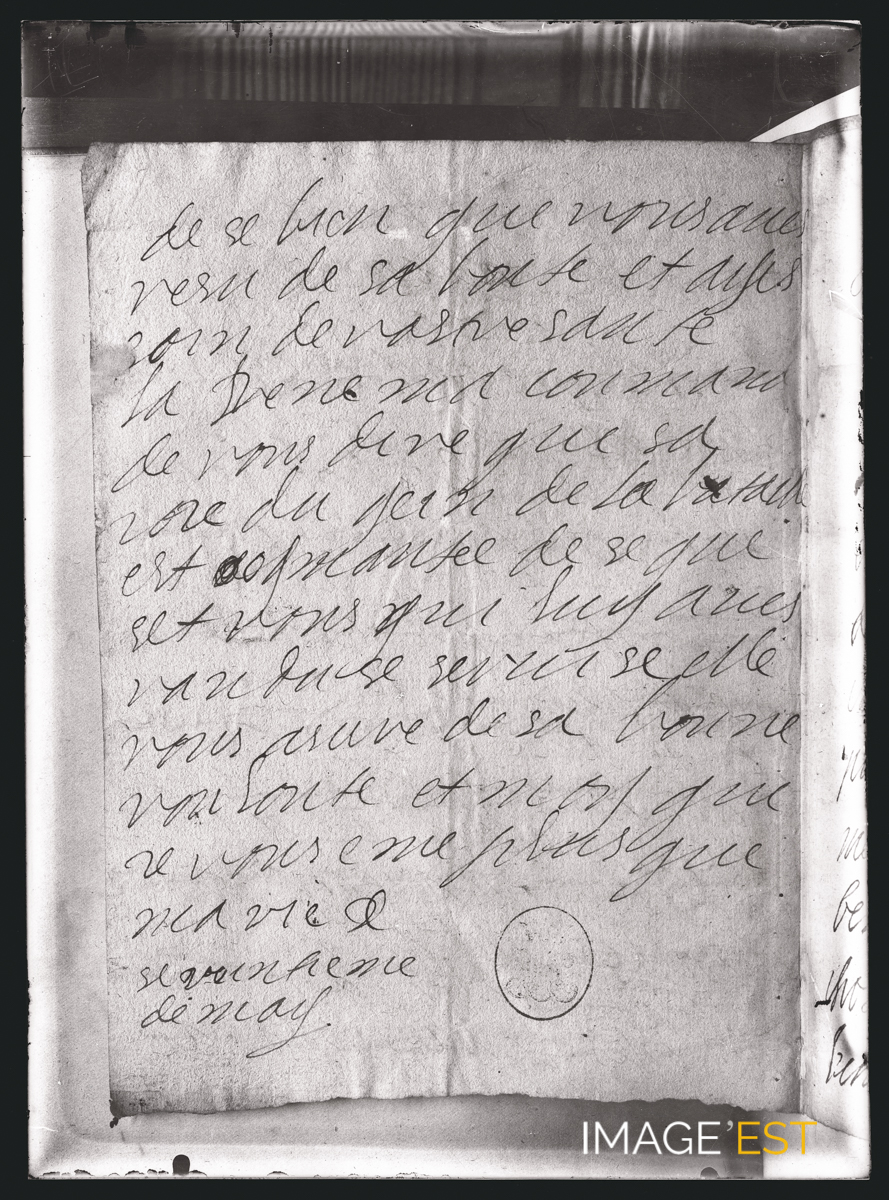 de se bien que vous aues
resu de sa bonte et ayes
soin de vostre sante
la Rene ma conmand
de vous dire que sa
ioie du gein de la bataille
est de se que
set vous qui luy aues
randu se servise elle
vous asure de sa bonne
voulonte et moy que
ie vous eme plus que
ma vie
se vuintieme
de may
IMAGE'EST